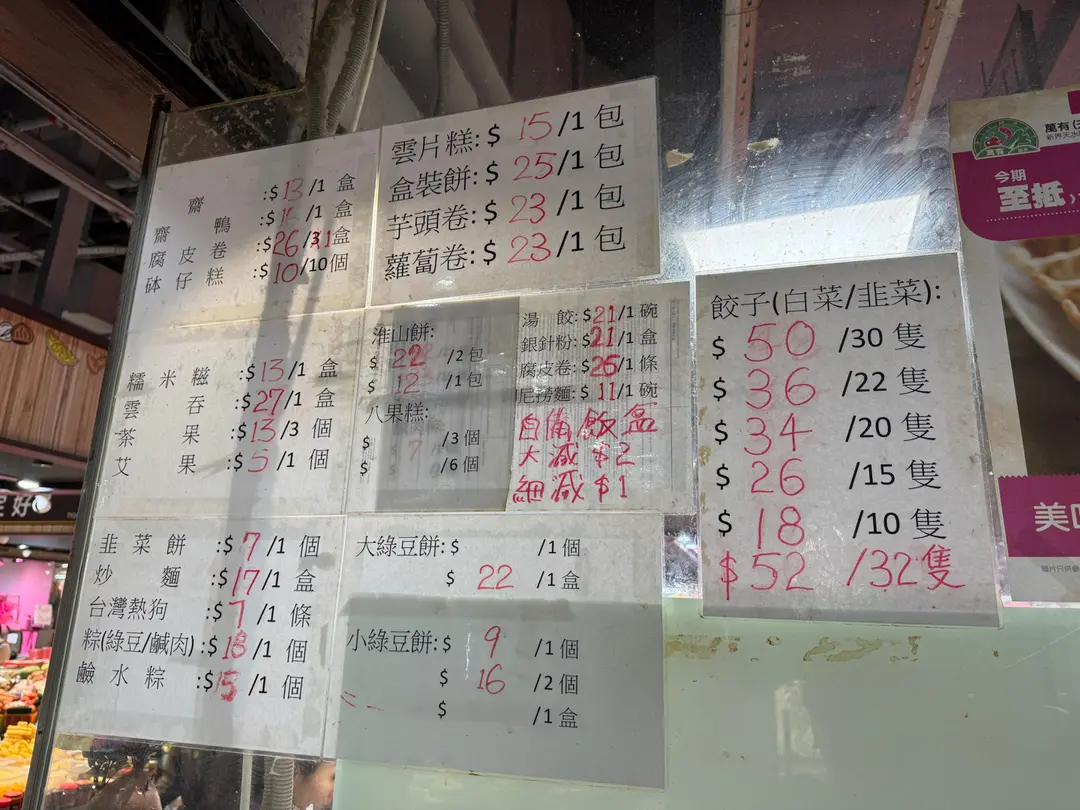 齋 :$13/1 盒
齋 鴨 :$ /1 盒
腐 皮 卷 :$26/ 1盒
砵 仔 糕 :$10/10個
雲片糕:$ 15/1 包
盒裝餅:$ 25/1 包
芋頭卷:$ 23/1 包
蘿蔔卷:$ 23/1 包
糯 米 糍 :$13/1 盒
雲 吞 :$27/1 盒
茶 果 :$13/3 個
艾 果 :$5/1 個
淮山餅:
$ 22 /2 包
$ 12 /1 包
八果糕:
$ 7 /3 個
$ /6 個
湯 餃:$21/1 碗
銀針粉:$21/1 盒
腐皮卷:$26/1 條
尼撈麵:$ 11/1 碗
自備飯盒
大減 $2
細減 $1
餃子(白菜/韭菜):
$ 50 /30 隻
$ 36 /22 隻
$ 34 /20 隻
$ 26 /15 隻
$ 18 /10 隻
$52 /32隻
韭 菜 餅 :$ 7 /1 個
炒 麵 :$17/1 盒
台灣熱狗 :$ 7 /1 條
粽(綠豆/鹹肉) :$18 /1 個
鹼 水 粽 :$15 /1 個
大綠豆餅:$ /1個
$ 22 /1 盒
小綠豆餅:$ 9 /1個
$ 16 /2 個
$ /1 盒
萬有
新界天水
今期
至抵
美